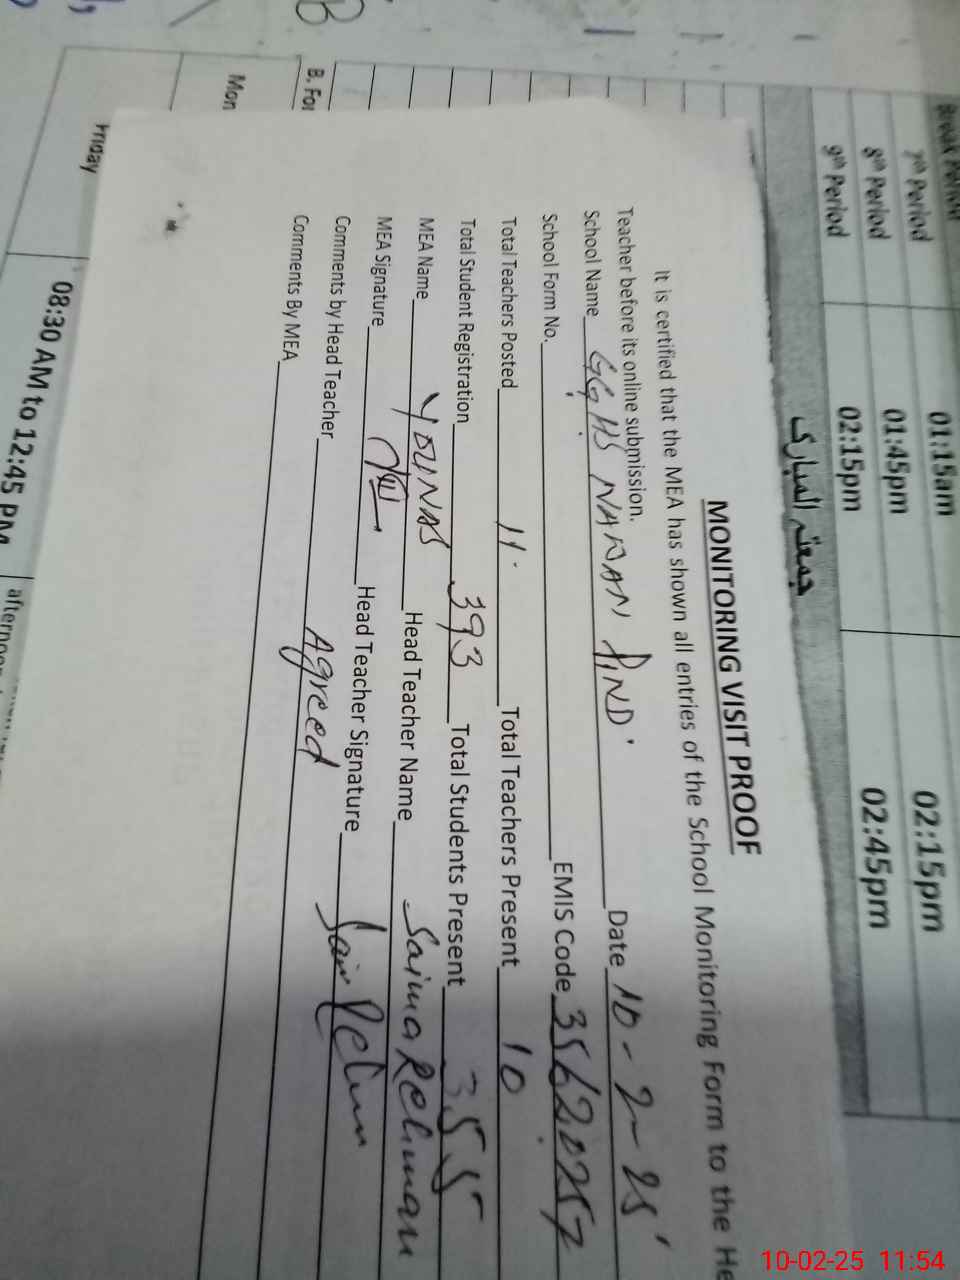 Break Period 01:15am 02:15pm
7th Period
8th Period 01:45pm 02:45pm
9th Period 02:15pm
جمعتہ المبارک
MONITORING VISIT PROOF
It is certified that the MEA has shown all entries of the School Monitoring Form to the He
Teacher before its online submission.
School Name GGHS NANAN PIND Date 10-2-25
School Form No. EMIS Code 35620257
Total Teachers Posted 11 Total Teachers Present 10
Total Student Registration 393 Total Students Present 355
MEA Name YOUNAS Head Teacher Name Saima Rehman
MEA Signature Head Teacher Signature
Comments by Head Teacher Agreed
Comments By MEA
B. For
Mon
Friday 08:30 AM to 12:45 PM
10-02-25 11:54